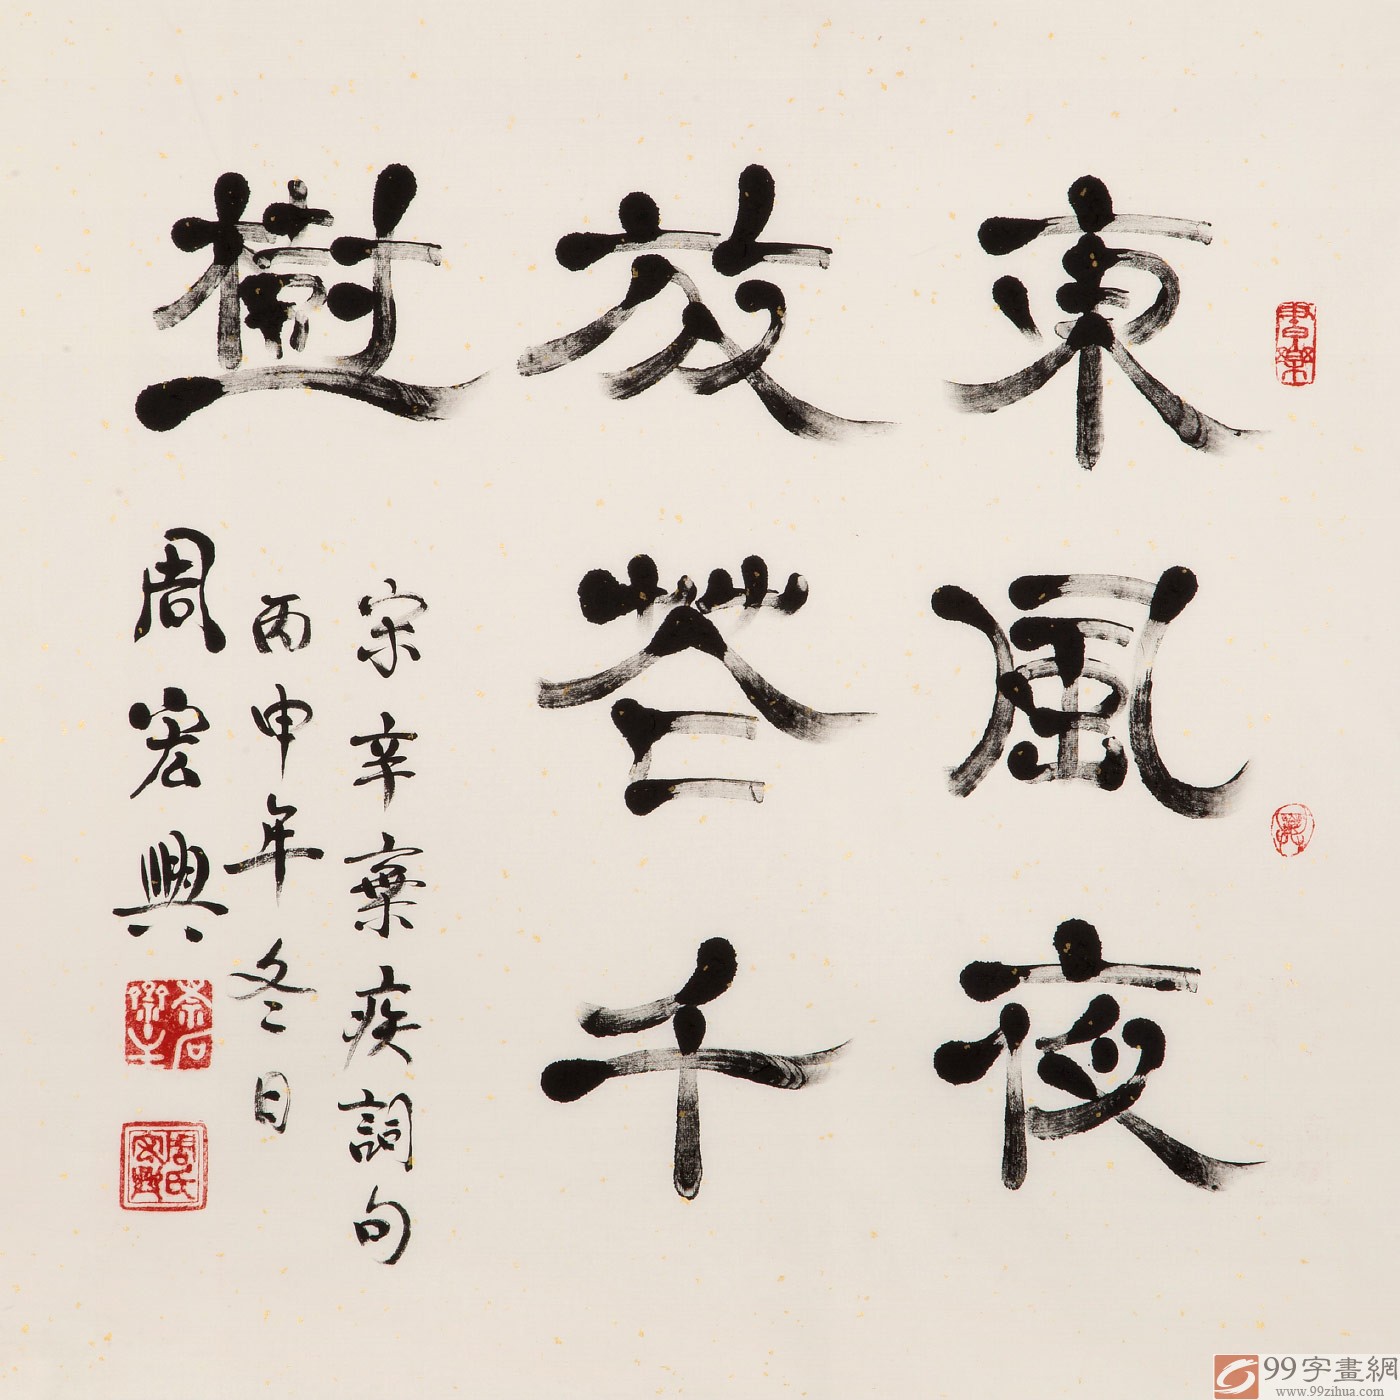 東風夜
放花千
樹
宋辛棄疾詞句
丙申年冬日
周宏興
99字畫網
www.99zihua.com